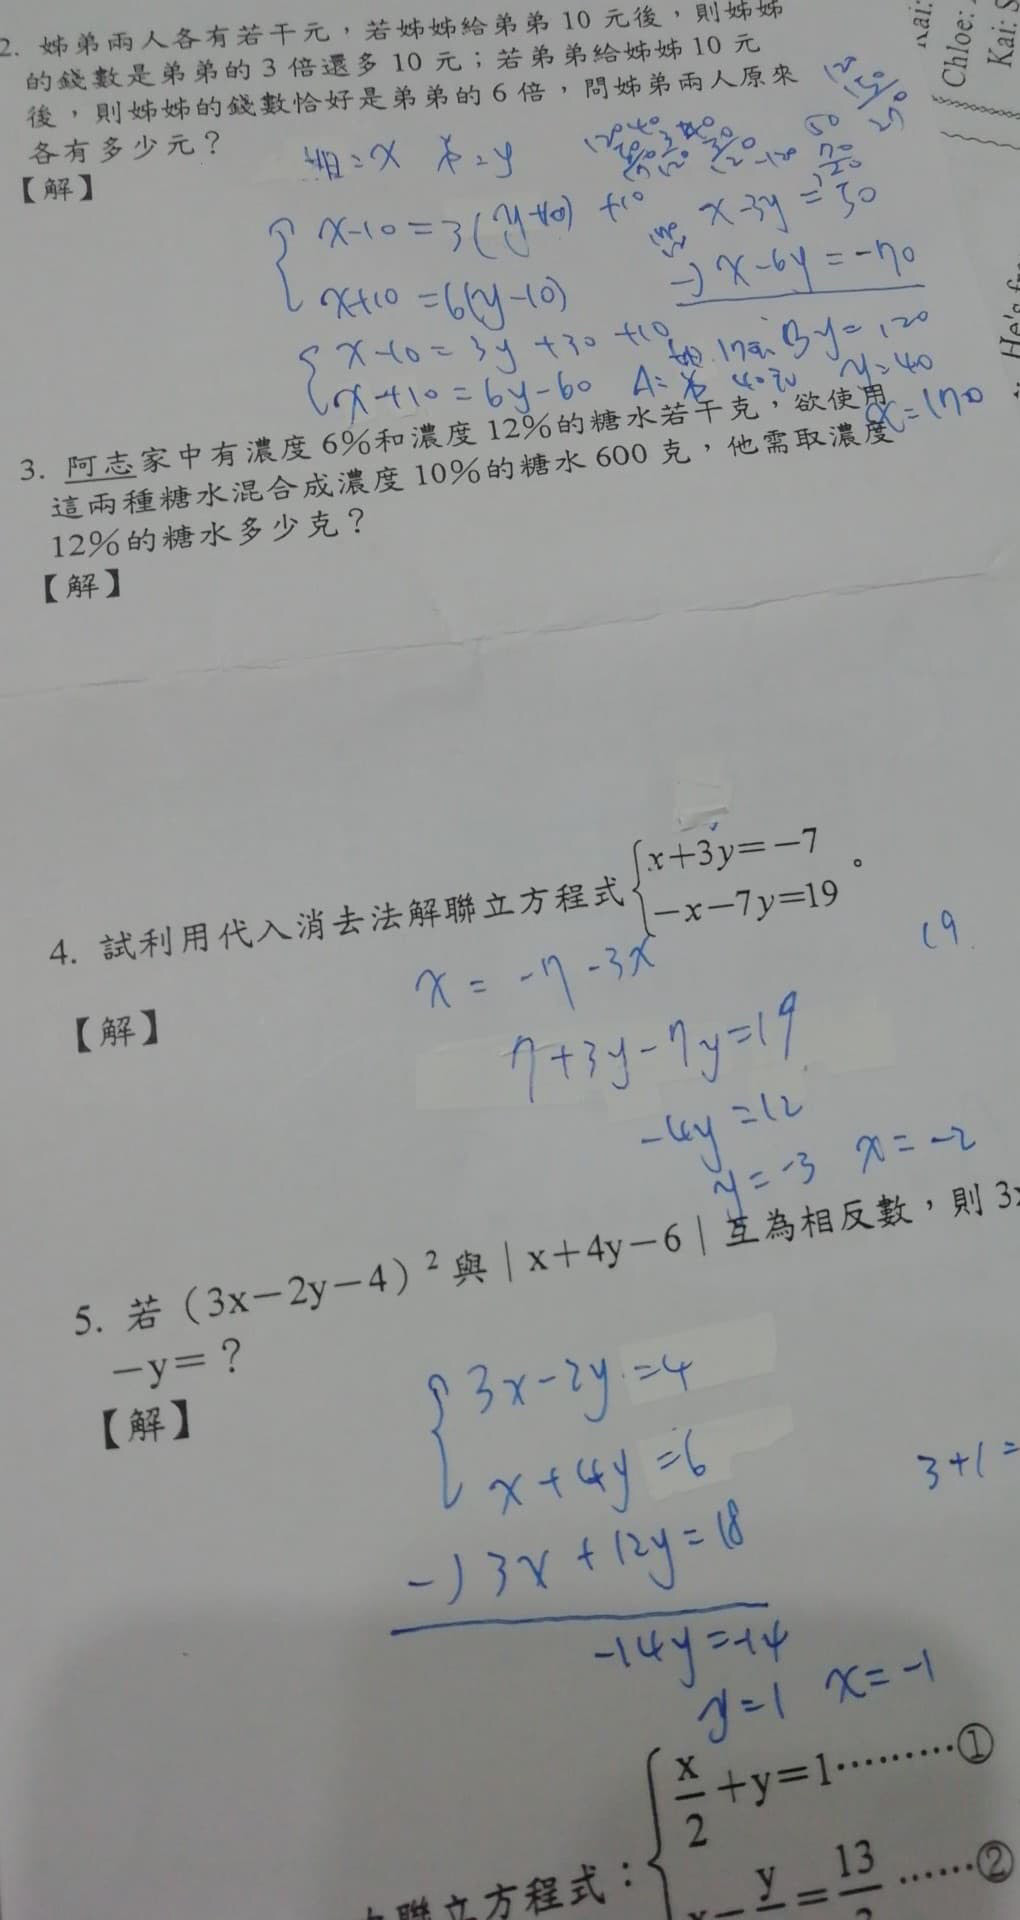 2. 姊弟兩人各有若干元，若姊姊給弟弟 10 元後，則姊姊
的錢數是弟弟的 3 倍還多 10 元；若弟弟給姊姊 10 元
後，則姊姊的錢數恰好是弟弟的 6 倍，問姊弟兩人原來
各有多少元？
【解】
姐=x 弟=y
x-10=3(y+10) +10
x+10=6(y-10)
x-10=3y+30+10
x+10=6y-60
x-3y=50
-) x-6y=-70
3y=120
y=40
x=170
A=姐 170元
弟 40元
3. 阿志家中有濃度 6%和濃度 12%的糖水若干克，欲使用
這兩種糖水混合成濃度 10%的糖水 600 克，他需取濃度
12%的糖水多少克？
【解】
4. 試利用代入消去法解聯立方程式
x+3y=-7
-x-7y=19 。
【解】
x=-7-3x
19
7+3y-7y=19
-4y=12
y=-3 x=-2
5. 若（3x-2y-4）²與｜x+4y-6｜互為相反數，則 3x
-y=？
【解】
3x-2y=4
x+4y=6
3+1=
-) 3x+12y=18
-14y=-14
y=1 x=-1
x/2+y=1………①
聯立方程式：
13 ……②
Chloe:
Kai:
Kai:
He's